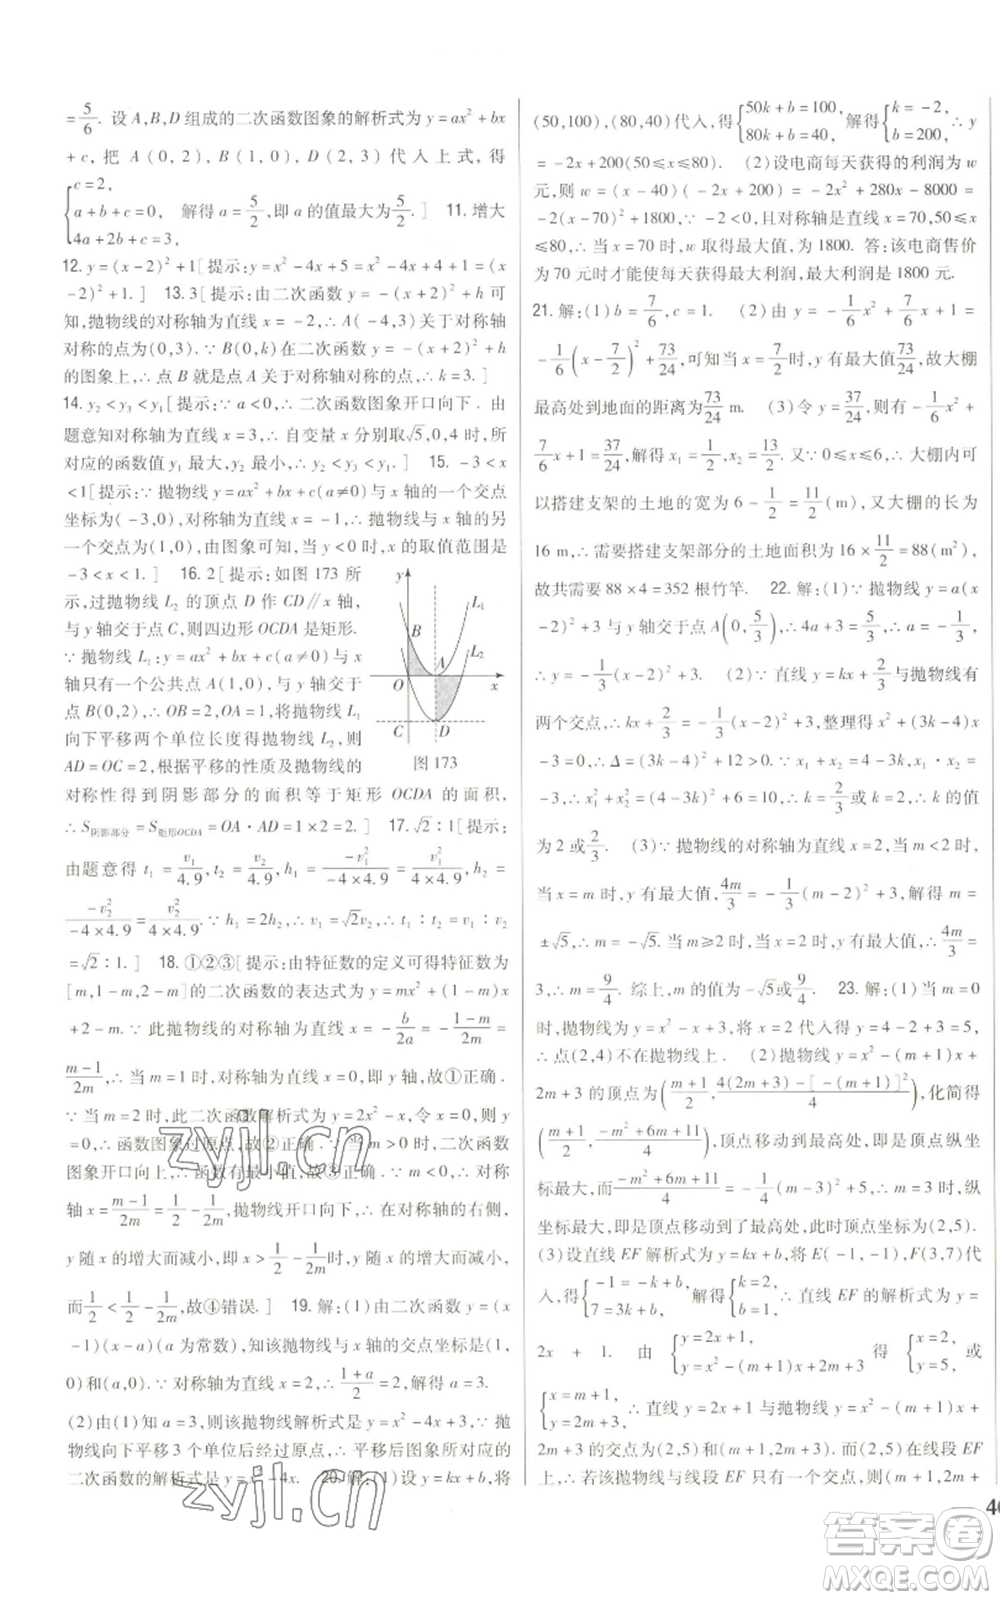 =5/6. 设 A,B,D 组成的二次函数图象的解析式为 y=ax²+bx
+c, 把 A(0,2), B(1,0), D(2,3) 代入上式, 得
{c=2, a+b+c=0, 4a+2b+c=3, 解得 a=5/2, 即 a 的值最大为5/2.] 11. 增大
12. y=(x-2)²+1[提示:y=x²-4x+5=x²-4x+4+1=(x
-2)²+1.] 13. 3[提示:由二次函数 y=-(x+2)²+h 可
知,抛物线的对称轴为直线 x=-2,∴A(-4,3)关于对称轴
对称的点为(0,3).∵B(0,k)在二次函数 y=-(x+2)²+h
的图象上,∴点 B 就是点 A 关于对称轴对称的点,∴k=3.]
14. y₂<y₃<y₁[提示:∵a<0,∴二次函数图象开口向下. 由
题意知对称轴为直线 x=3,∴自变量 x 分别取√5,0,4 时,所
对应的函数值 y₁ 最大,y₂ 最小,∴y₂<y₃<y₁.] 15. -3<x
<1[提示:∵抛物线 y=ax²+bx+c(a≠0)与 x 轴的一个交点
坐标为(-3,0),对称轴为直线 x=-1,∴抛物线与 x 轴的另
一个交点为(1,0),由图象可知,当 y<0 时,x 的取值范围是
-3<x<1.] 16. 2[提示:如图 173 所
示,过抛物线 L₂ 的顶点 D 作 CD∥x 轴,
与 y 轴交于点 C,则四边形 OCDA 是矩形.
∵抛物线 L₁:y=ax²+bx+c(a≠0)与 x
轴只有一个公共点 A(1,0),与 y 轴交于
点 B(0,2),∴OB=2,OA=1,将抛物线 L₁
向下平移两个单位长度得抛物线 L₂,则
AD=OC=2,根据平移的性质及抛物线的
y
L₁
B
A
L₂
O
x
C
D
图 173
对称性得到阴影部分的面积等于矩形 OCDA 的面积,
∴S阴影部分=S矩形OCDA=OA·AD=1×2=2.] 17. √2:1[提示:
由题意得 t₁=v₁/4.9,t₂=v₂/4.9,h₁=-v₁²/(-4×4.9),h₂=
-v₂²/(-4×4.9).∵h₁=2h₂,∴v₁=√2v₂,∴t₁:t₂=v₁:v₂
=√2:1.] 18. ①②③[提示:由特征数的定义可得特征数为
[m,1-m,2-m]的二次函数的表达式为 y=mx²+(1-m)x
+2-m. ∵此抛物线的对称轴为直线 x=-b/2a=-(1-m)/2m=
(m-1)/2m,∴当 m=1 时,对称轴为直线 x=0,即 y 轴,故①正确.
∵当 m=2 时,此二次函数解析式为 y=2x²-x,令 x=0,则 y
=0,∴函数图象过原点,故②正确. ∵当 m>0 时,二次函数
图象开口向上,函数有最小值,故③正确. ∵m<0,∴对称
轴 x=(m-1)/2m=1/2-1/2m,抛物线开口向下,∴在对称轴的右侧,
y 随 x 的增大而减小,即 x>1/2-1/2m时,y 随 x 的增大而减小,
而1/2<1/2-1/2m,故④错误.] 19. 解:(1)由二次函数 y=(x
-1)(x-a)(a 为常数),知该抛物线与 x 轴的交点坐标是(1,
0)和(a,0).∵对称轴为直线 x=2,∴(1+a)/2=2,解得 a=3.
(2)由(1)知 a=3,则该抛物线解析式是 y=x²-4x+3,∴抛
物线向下平移 3 个单位后经过原点,∴平移后图象所对应的
二次函数的解析式是 y=x²-4x. 20. 解:(1)设 y=kx+b,将
(50,100),(80,40)代入,得{50k+b=100, 80k+b=40, 解得{k=-2, b=200, ∴y
=-2x+200(50≤x≤80). (2)设电商每天获得的利润为 w
元,则 w=(x-40)(-2x+200)=-2x²+280x-8000=
-2(x-70)²+1800,∵-2<0,且对称轴是直线 x=70,50≤x
≤80,∴当 x=70 时,w 取得最大值,为 1800. 答:该电商售价
为 70 元时才能使每天获得最大利润,最大利润是 1800 元.
21. 解:(1)b=7/6,c=1. (2)由 y=-1/6x²+7/6x+1=
-1/6(x-7/2)²+73/24,可知当 x=7/2时,y 有最大值73/24,故大棚
最高处到地面的距离为73/24 m. (3)令 y=37/24,则有-1/6x²+
7/6x+1=37/24,解得 x₁=1/2,x₂=13/2. 又∵0≤x≤6,∴大棚内可
以搭建支架的土地的宽为 6-1/2=11/2(m),又大棚的长为
16 m,∴需要搭建支架部分的土地面积为 16×11/2=88(m²),
故共需要 88×4=352 根竹竿. 22. 解:(1)∵抛物线 y=a(x
-2)²+3 与 y 轴交于点 A(0,5/3),∴4a+3=5/3,∴a=-1/3.
∴y=-1/3(x-2)²+3. (2)∵直线 y=kx+5/3与抛物线有
两个交点,∴kx+5/3=-1/3(x-2)²+3,整理得 x²+(3k-4)x
-3=0,∴Δ=(3k-4)²+12>0.∵x₁+x₂=4-3k,x₁·x₂=
-3,∴x₁²+x₂²=(4-3k)²+6=10,∴k=2/3或 k=2,∴k 的值
为 2 或2/3. (3)∵抛物线的对称轴为直线 x=2,当 m<2 时,
当 x=m 时,y 有最大值,4m/3=-1/3(m-2)²+3,解得 m=
±√5,∴m=-√5. 当 m≥2 时,当 x=2 时,y 有最大值,∴4m/3=
3,∴m=9/4. 综上,m 的值为-√5或9/4. 23. 解:(1)当 m=0
时,抛物线为 y=x²-x+3,将 x=2 代入得 y=4-2+3=5,
∴点(2,4)不在抛物线上. (2)抛物线 y=x²-(m+1)x+
2m+3 的顶点为((m+1)/2,(4(2m+3)-[-(m+1)]²)/4),化简得
((m+1)/2,(-m²+6m+11)/4),顶点移动到最高处,即是顶点纵坐
标最大,而(-m²+6m+11)/4=-1/4(m-3)²+5,∴m=3 时,纵
坐标最大,即是顶点移动到了最高处,此时顶点坐标为(2,5).
(3)设直线 EF 解析式为 y=kx+b,将 E(-1,-1),F(3,7)代
入得{-1=-k+b, 7=3k+b, 解得{k=2, b=1, ∴直线 EF 的解析式为 y=
2x+1. 由{y=2x+1, y=x²-(m+1)x+2m+3 得{x=2, y=5, 或
{x=m+1, y=2m+3, ∴直线 y=2x+1 与抛物线 y=x²-(m+1)x+
2m+3 的交点为(2,5)和(m+1,2m+3). 而(2,5)在线段 EF
上,∴若该抛物线与线段 EF 只有一个交点,则(m+1,2m+
zyjl.cn
zyjl.cn
答案卷
MXQE.COM